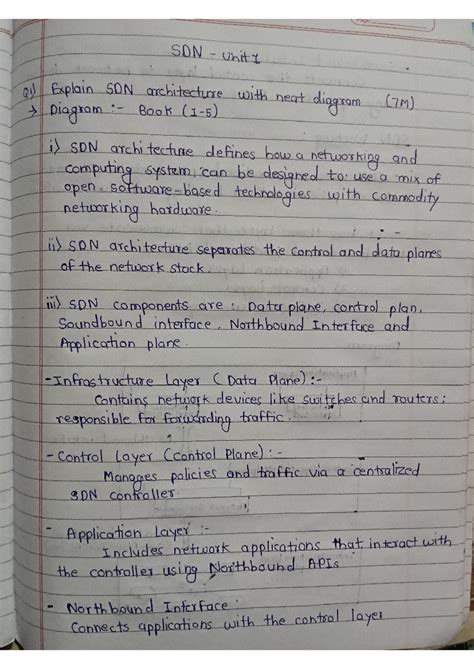 SDN - Unit 1
Q1) Explain SDN architecture with neat diagram (7M)
→ Diagram :- Book (1-5)
i) SDN architecture defines how a networking and
computing system, can be designed to use a mix of
open, software-based technologies with commodity
networking hardware.
ii) SDN architecture separates the control and data planes
of the network stack.
iii) SDN components are : Data plane, control plan,
Soundbound interface, Northbound Interface and
Application plane.
- Infrastructure Layer (Data Plane) :-
Contains network devices like switches and routers;
responsible for forwarding traffic.
- Control Layer (Control Plane) :-
Manages policies and traffic via a centralized
SDN controller.
- Application Layer :-
Includes network applications that interact with
the controller using Northbound APIs
- Northbound Interface :
Connects applications with the control layer